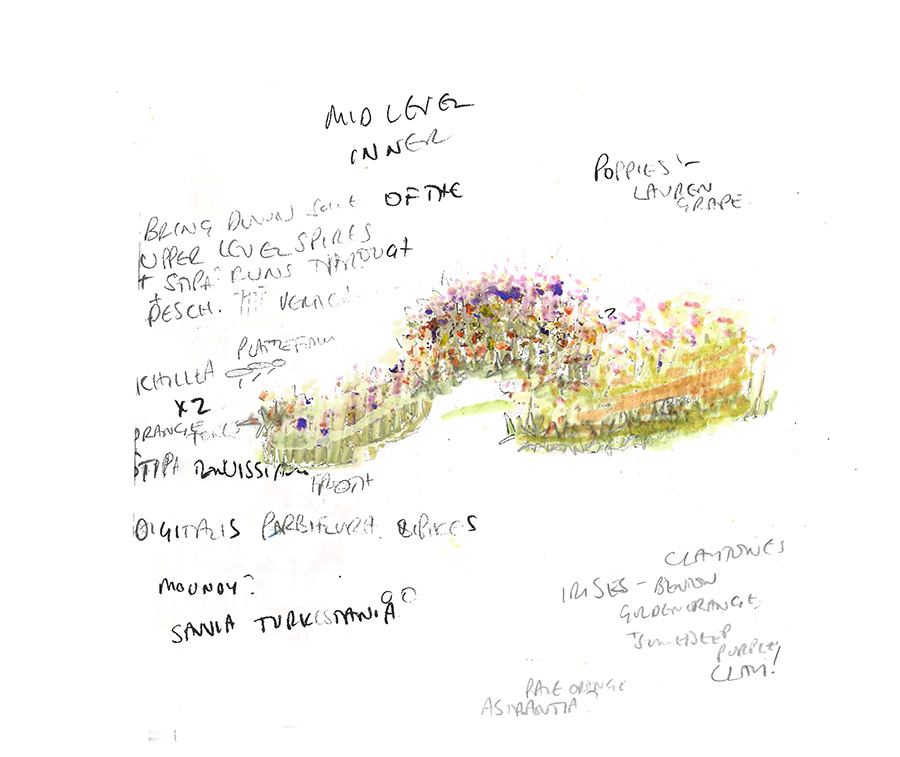 MID LEVEL
INNER
POPPIES :-
LAUREN
GRAPE
BRING DOWN SOME OF THE
UPPER LEVEL SPIRES
+ STIPA RUNS THROUGH
+ DESCH.
PLATEFORM
ICHILLEA
X2
ORANGE
STIPA TENUISSIMA
FROTH
DIGITALIS PARBIFLORA SPIKES
MOUNDY?
SAVIA TURKESTANIA
CLAYTONES
IRISES - BENTON
GOLDEN ORANGE
+ SOME DEEP
PURPLE
CLAY!
PALE ORANGE
ASTRANTIA